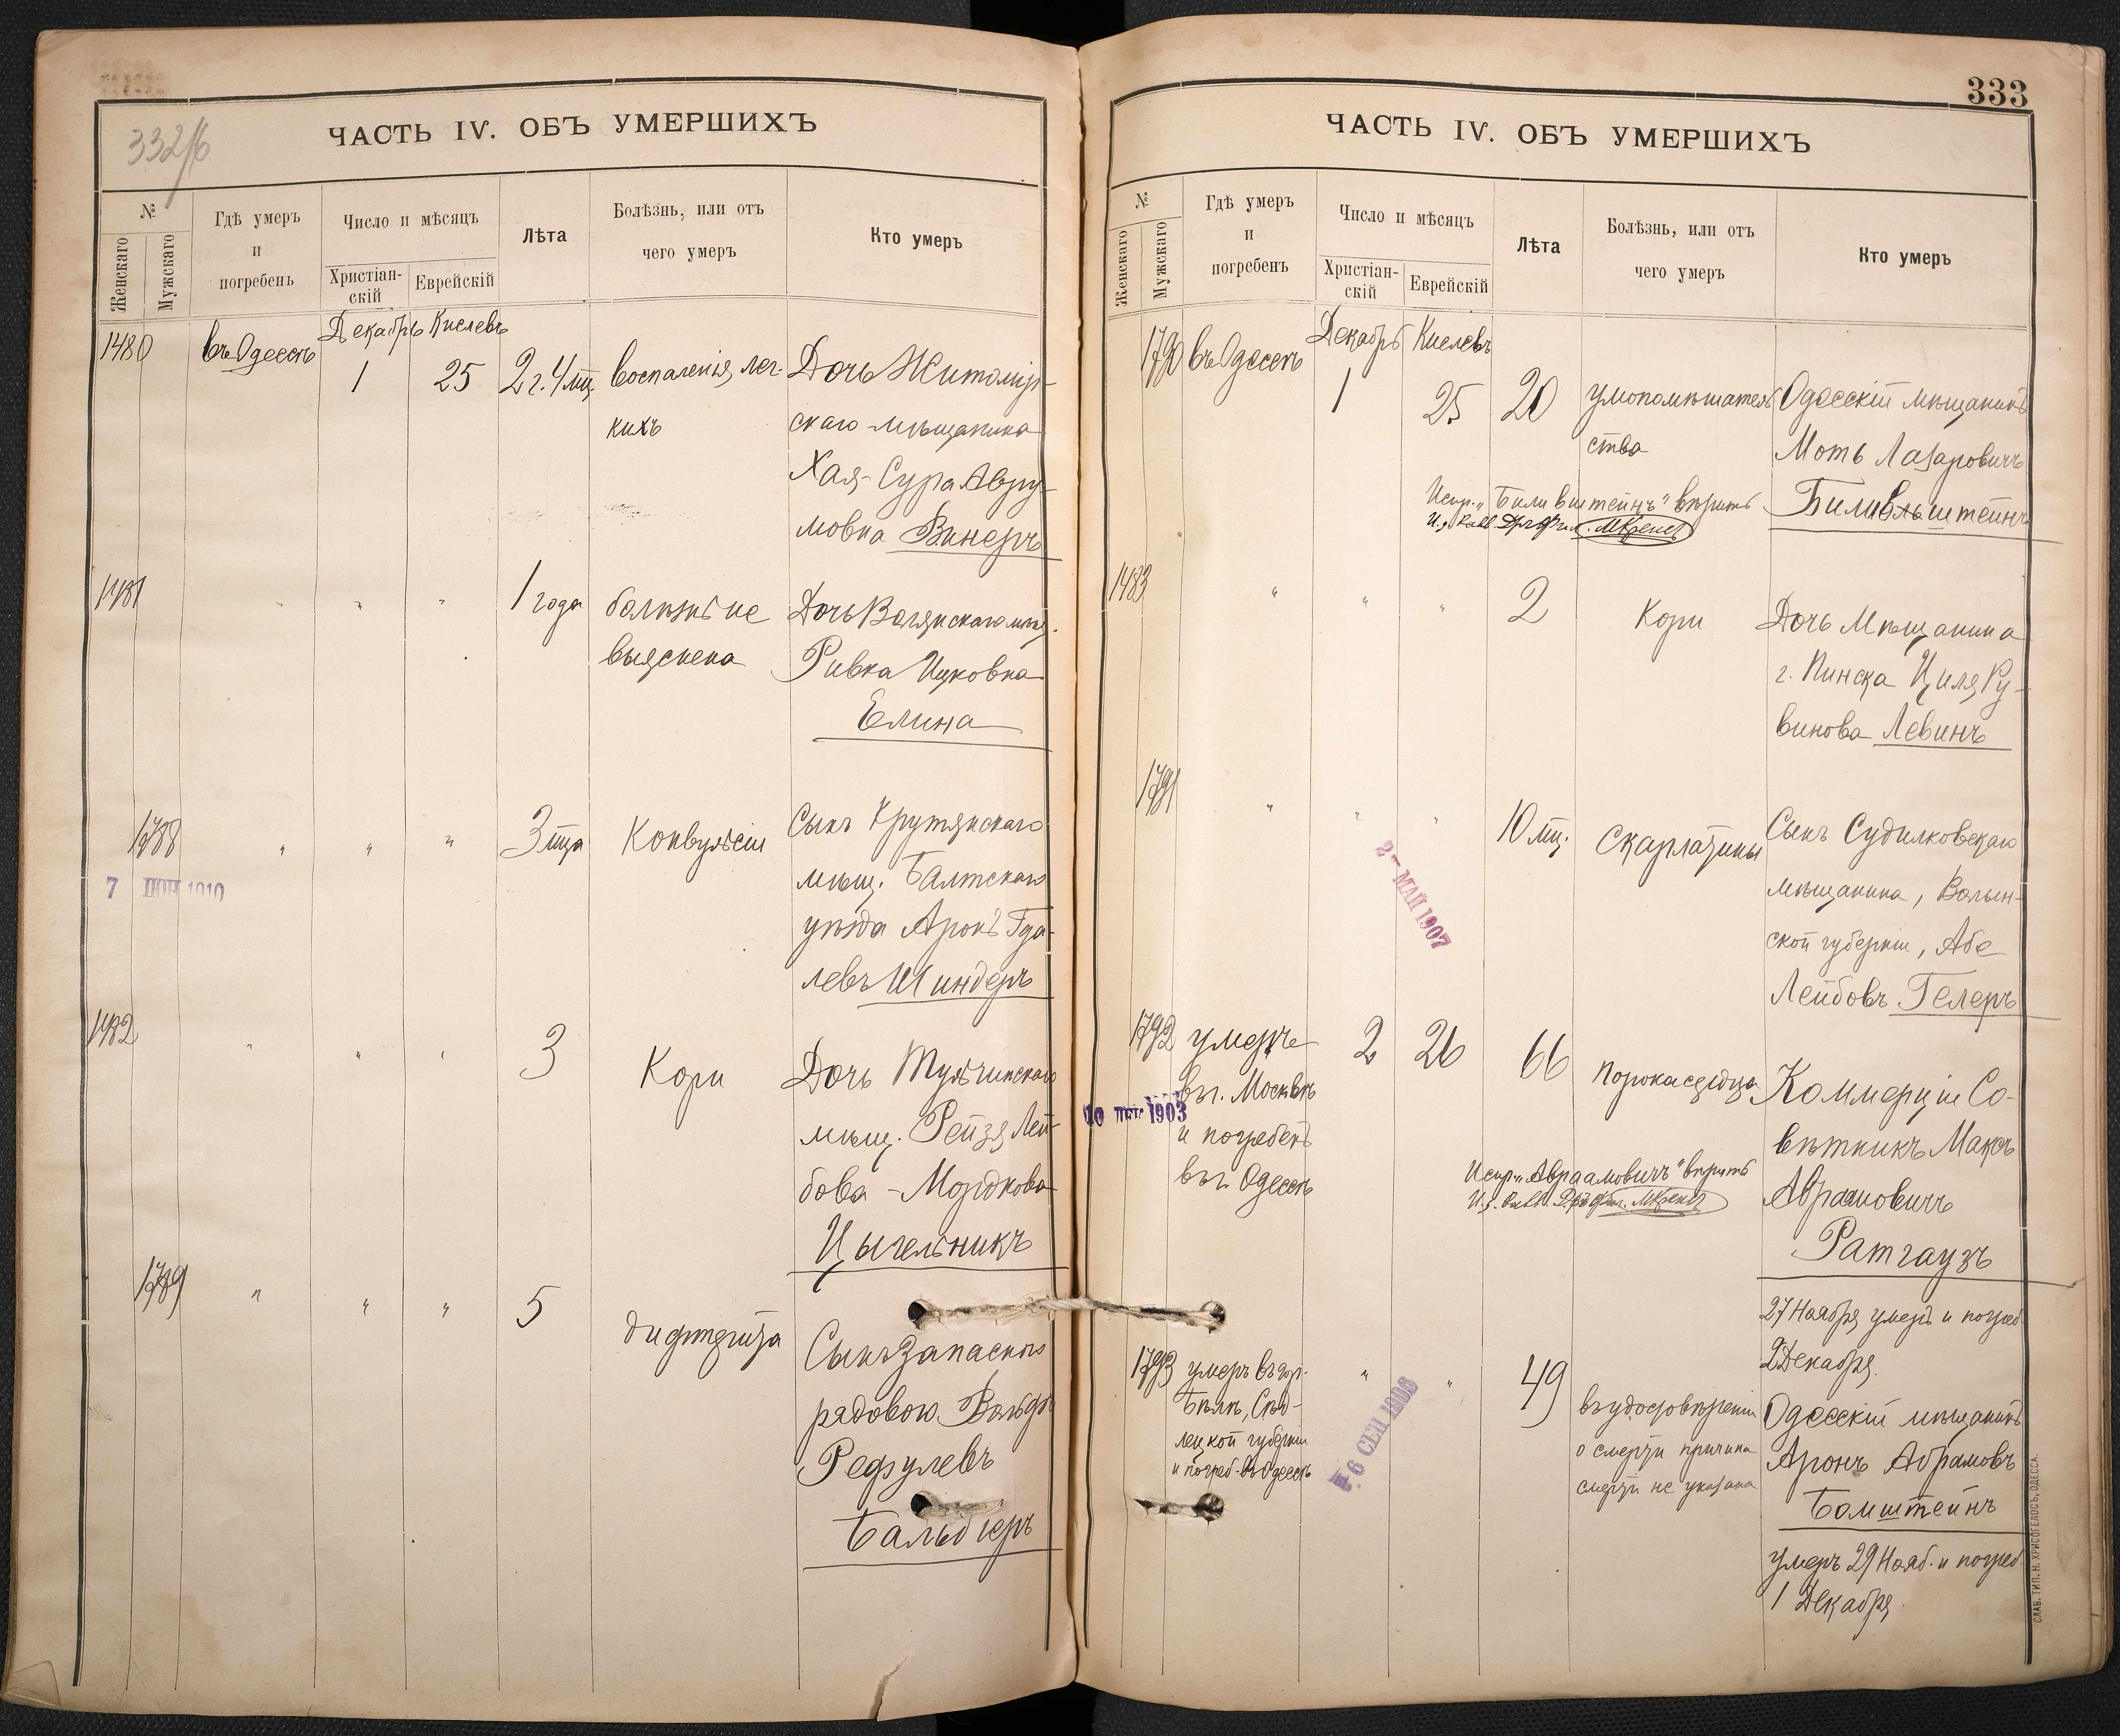 332/б
ЧАСТЬ IV. ОБЪ УМЕРШИХЪ
№
Женскаго
Мужскаго
Гдѣ умеръ
и
погребенъ
Число и мѣсяцъ
Христіан-
скій
Еврейскій
Лѣта
Болѣзнь, или отъ
чего умеръ
Кто умеръ
Декабрь Кислевъ
1480 въ Одессѣ 1 25 2 г. 4 мц. воспаленія лег-
кихъ
Дочь Житомир-
скаго мѣщанина
Хая-Сура Авру-
мовна Винеръ
1481 " " " 1 года болѣзнь не
выяснена
Дочь Волянскаго мѣщ.
Ривка Ицковна
Елина
1788 " " " 3 мца Конвульсіи
7 ІЮН 1910
Сынъ Крутянскаго
мѣщ. Балтскаго
уѣзда Аронъ Гда-
левъ Шиндеръ
1482 " " " 3 Кори
Дочь Тульчинскаго
мѣщ. Рейзя Лей-
бова-Мордкова
Цыгельникъ
1789 " " " 5 дифтерита
Сынъ Запаснаго
рядового Вольфъ
Рефулевъ
Бальбіеръ
333
ЧАСТЬ IV. ОБЪ УМЕРШИХЪ
№
Женскаго
Мужскаго
Гдѣ умеръ
и
погребенъ
Число и мѣсяцъ
Христіан-
скій
Еврейскій
Лѣта
Болѣзнь, или отъ
чего умеръ
Кто умеръ
Декабрь Кислевъ
1790 въ Одессѣ 1 25 20 умопомѣшатель
ства
Одесскій мѣщанинъ
Мотъ Лазаровичъ
Биливльштейнъ
Испр. „Биливштейнъ" вѣрить
1483 " " " 2 Кори
Дочь Мѣщанина
г. Пинска Циля Ру-
винова Левинъ
1791 " " " 10 мц. Скарлатины
2- МАЙ 1907
Сынъ Судилковскаго
мѣщанина, Волын-
ской губерніи, Абе
Лейбовъ Гелеръ
1792 умеръ
въ г. Москвѣ
и погребенъ
въ г. Одессѣ
2 26 66 Порока сердца
1903
Коммерціи Со-
вѣтникъ Максъ
Абрамовичъ
Ратгаузъ
Испр. „Авраамовичъ" вѣрить
27 Ноября умеръ и погреб.
2 Декабря.
1793 умеръ въ гор.
Бѣлѣ, Сѣд-
лецкой губерніи
и погреб. въ Одессѣ
" " 49 въ удостовѣреніи
о смерти причина
смерти не указана
6 СЕН 1908
Одесскій мѣщанинъ
Аронъ Абрамовъ
Бомштейнъ
умеръ 29 Нояб. и погреб.
1 Декабря.
СЛАВ. ТИП. Н. ХРИСОГЕЛОСЪ, ОДЕССА.